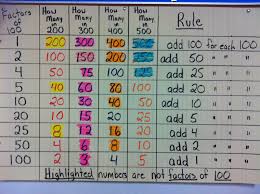 Factors of 100 How Many in 200 How Many in 300 How Many in 400 How Many in 500 Rule
1 200 300 400 500 add 100 for each 100
2 100 150 200 250 add 50 " " "
4 50 75 100 125 add 25 " " "
5 40 60 80 100 add 20 " " "
10 20 30 40 50 add 10 " " "
20 10 15 20 25 add 5 " " "
25 8 12 16 20 add 4 " " "
50 4 6 8 10 add 2 " " "
100 2 3 4 5 add 1 " " "
Highlighted numbers are not factors of 100